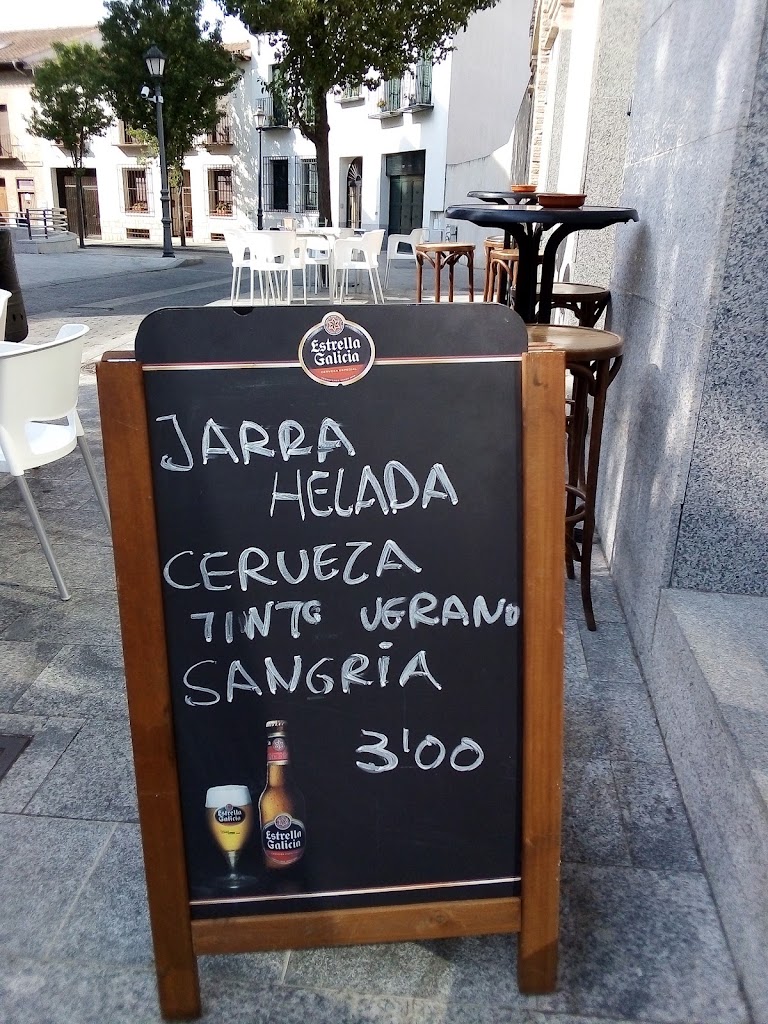 Estrella
Galicia
JARRA
HELADA
CERVEZA
TINTO VERANO
SANGRIA
3'00
Estrella
Galicia
Estrella
Galicia